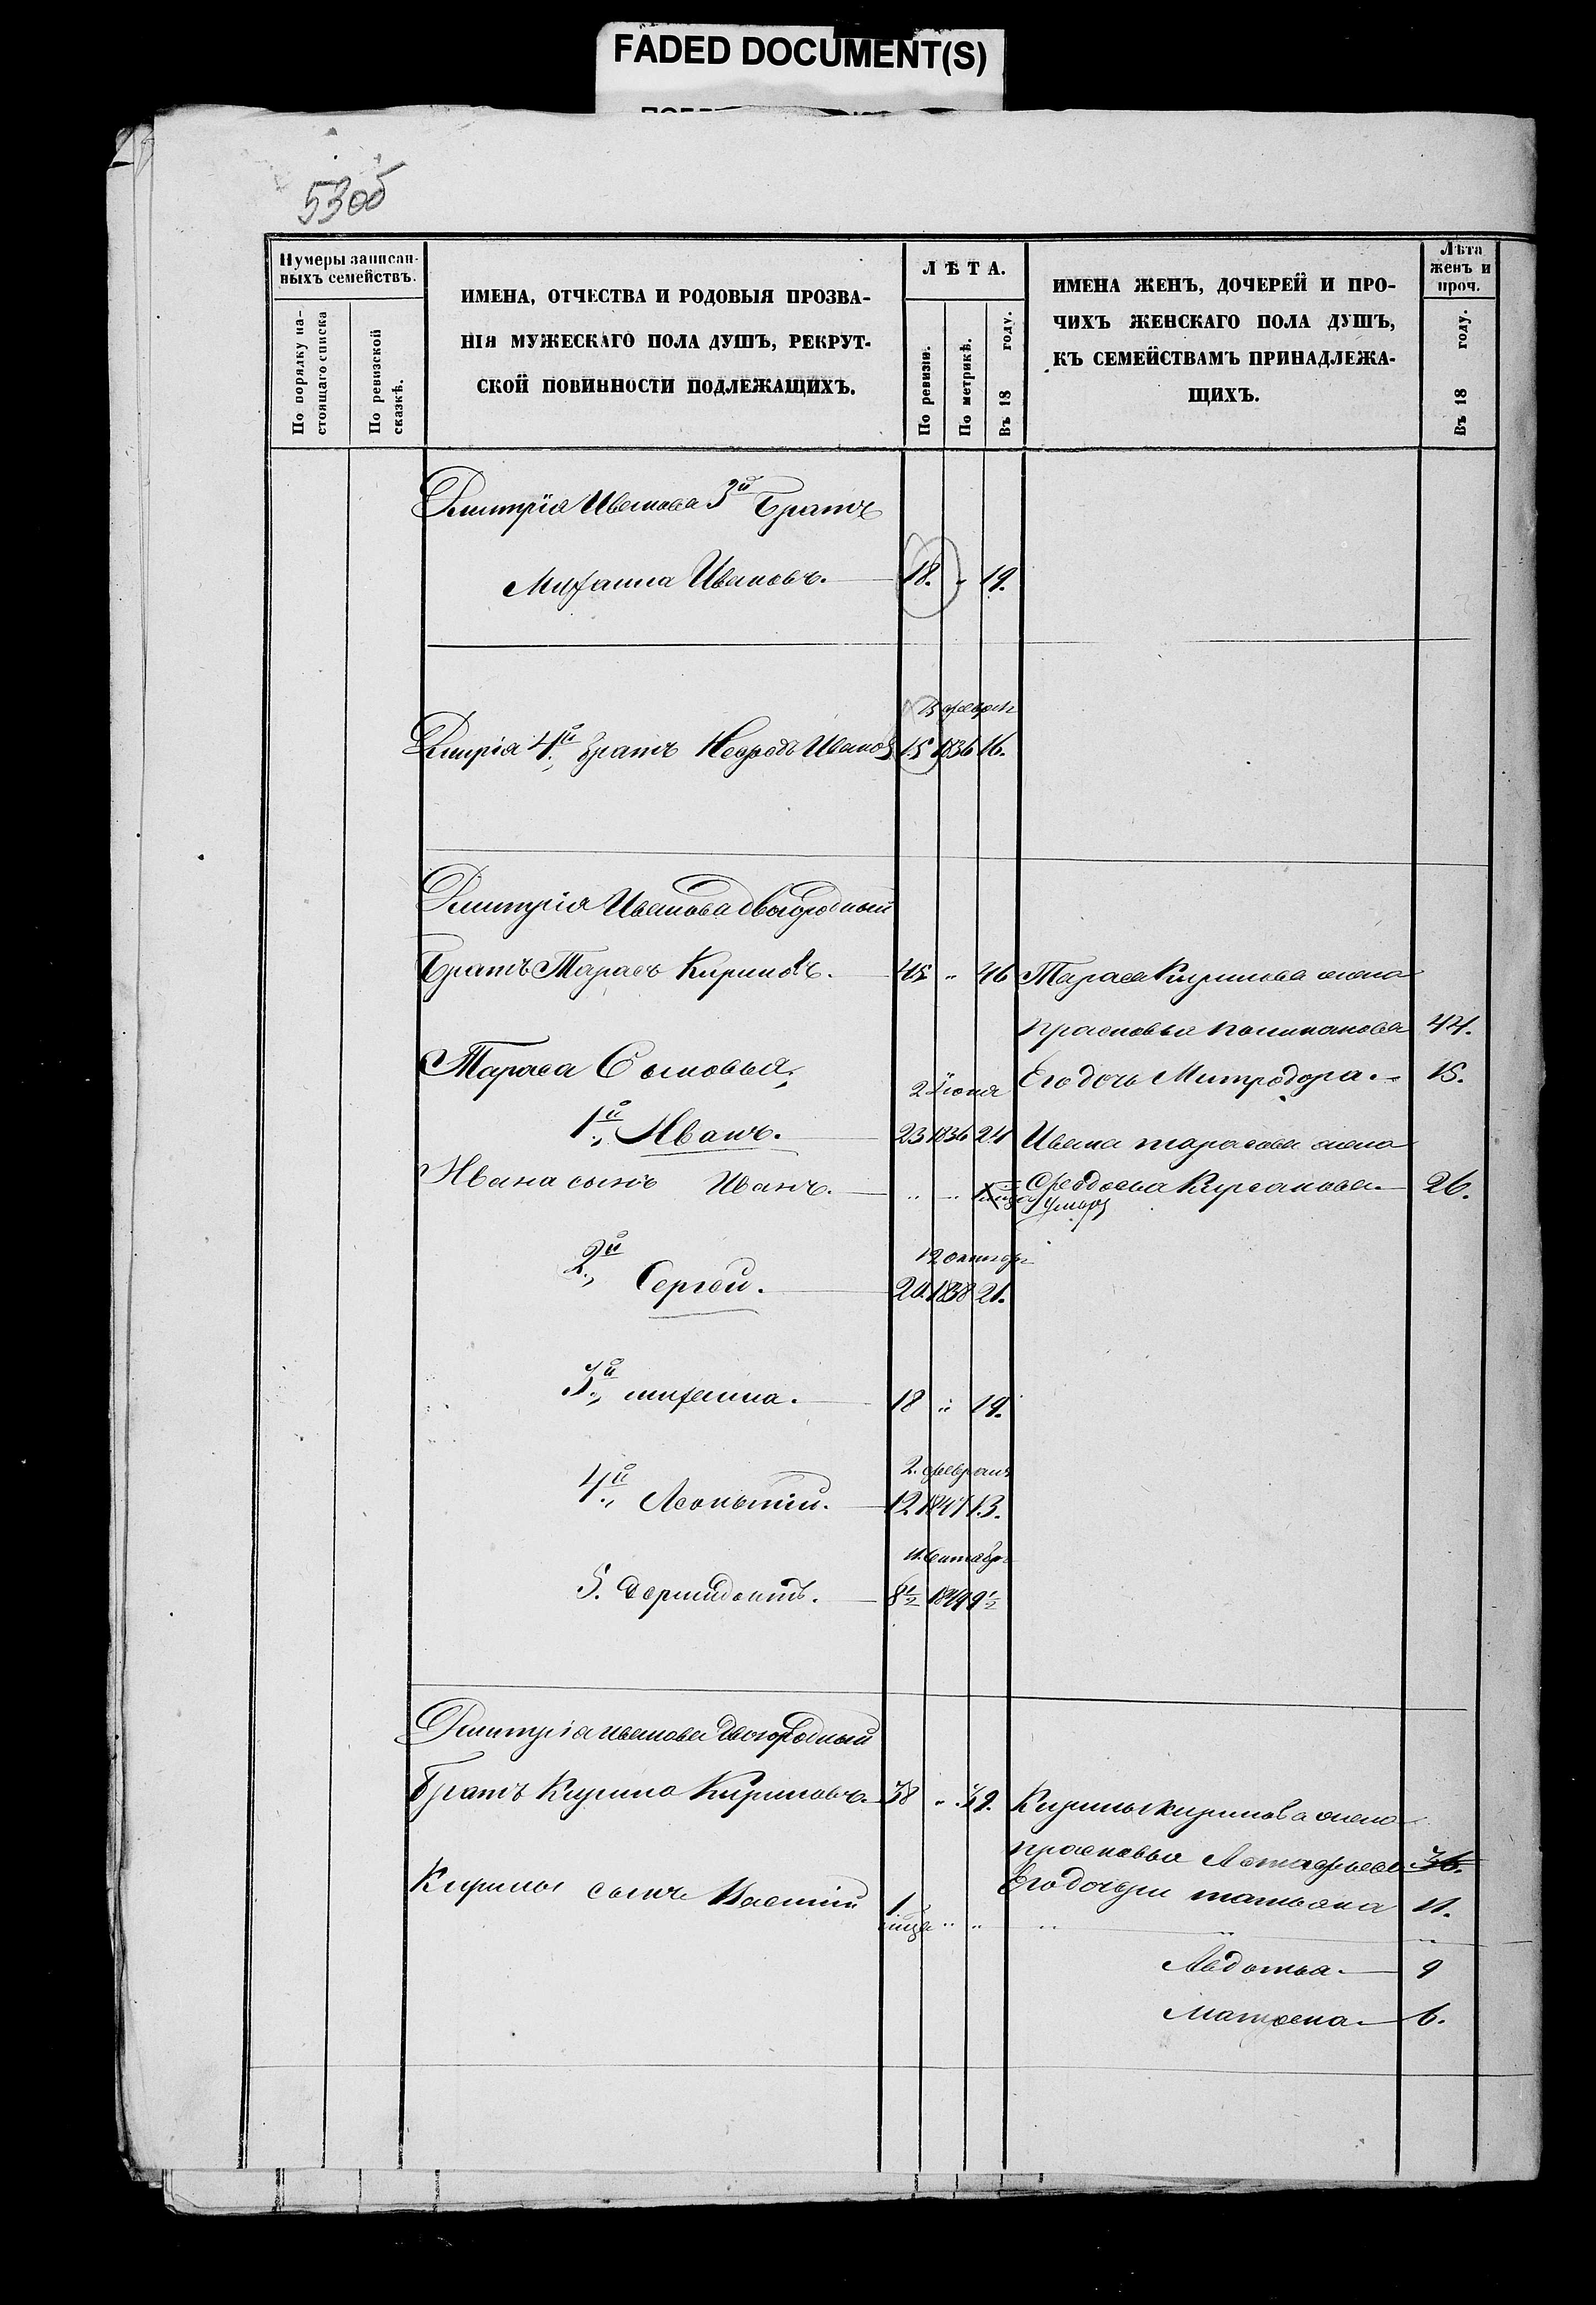 FADED DOCUMENT(S)
53об
Нумеры записан-
ныхъ семействъ.
По порядку на-
стоящаго списка
По ревизской
сказкѣ.
ИМЕНА, ОТЧЕСТВА И РОДОВЫЯ ПРОЗВА-
НІЯ МУЖЕСКАГО ПОЛА ДУШЪ, РЕКРУТ-
СКОЙ ПОВИННОСТИ ПОДЛЕЖАЩИХЪ.
ЛѢТА.
По ревизіи.
По метрикѣ.
Въ 18 году.
ИМЕНА ЖЕНЪ, ДОЧЕРЕЙ И ПРО-
ЧИХЪ ЖЕНСКАГО ПОЛА ДУШЪ,
КЪ СЕМЕЙСТВАМЪ ПРИНАДЛЕЖА-
ЩИХЪ.
Лѣта
женъ и
проч.
Въ 18 году.
Дмитрія Иванова 3й Братъ
Михаила Ивановъ. 18. " 19.
февраля
Дмитрія 4й братъ Иванов 15 1836 16.
Дмитрія Иванова двоюродный
Братъ Тарасъ Кириловъ. 45 " 46 Тараса Кирилова жена
Прасковья 44.
Тараса Сыновья, 2 Іюня Его дочь Митродора. 15.
1й Иванъ. 23 1836 24 Ивана Тарасова жена
Ивана сынъ Иванъ. " " Федосья 26.
умеръ
2й Сергей. 20 1838 21.
12 октября
3й михаила. 18 " 19.
2 февраля
4й Леонтій. 12 1847 13.
5. 8½ 1849 9½
Дмитрія иванова двоюродный
Братъ Кирило Кириловъ. 38 " 39. Кирилы кирилова жена
прасковья 36.
Кирилы сынъ 1 " " Его дочери татьяна 11.
Авдотья 9
Матрена 6.